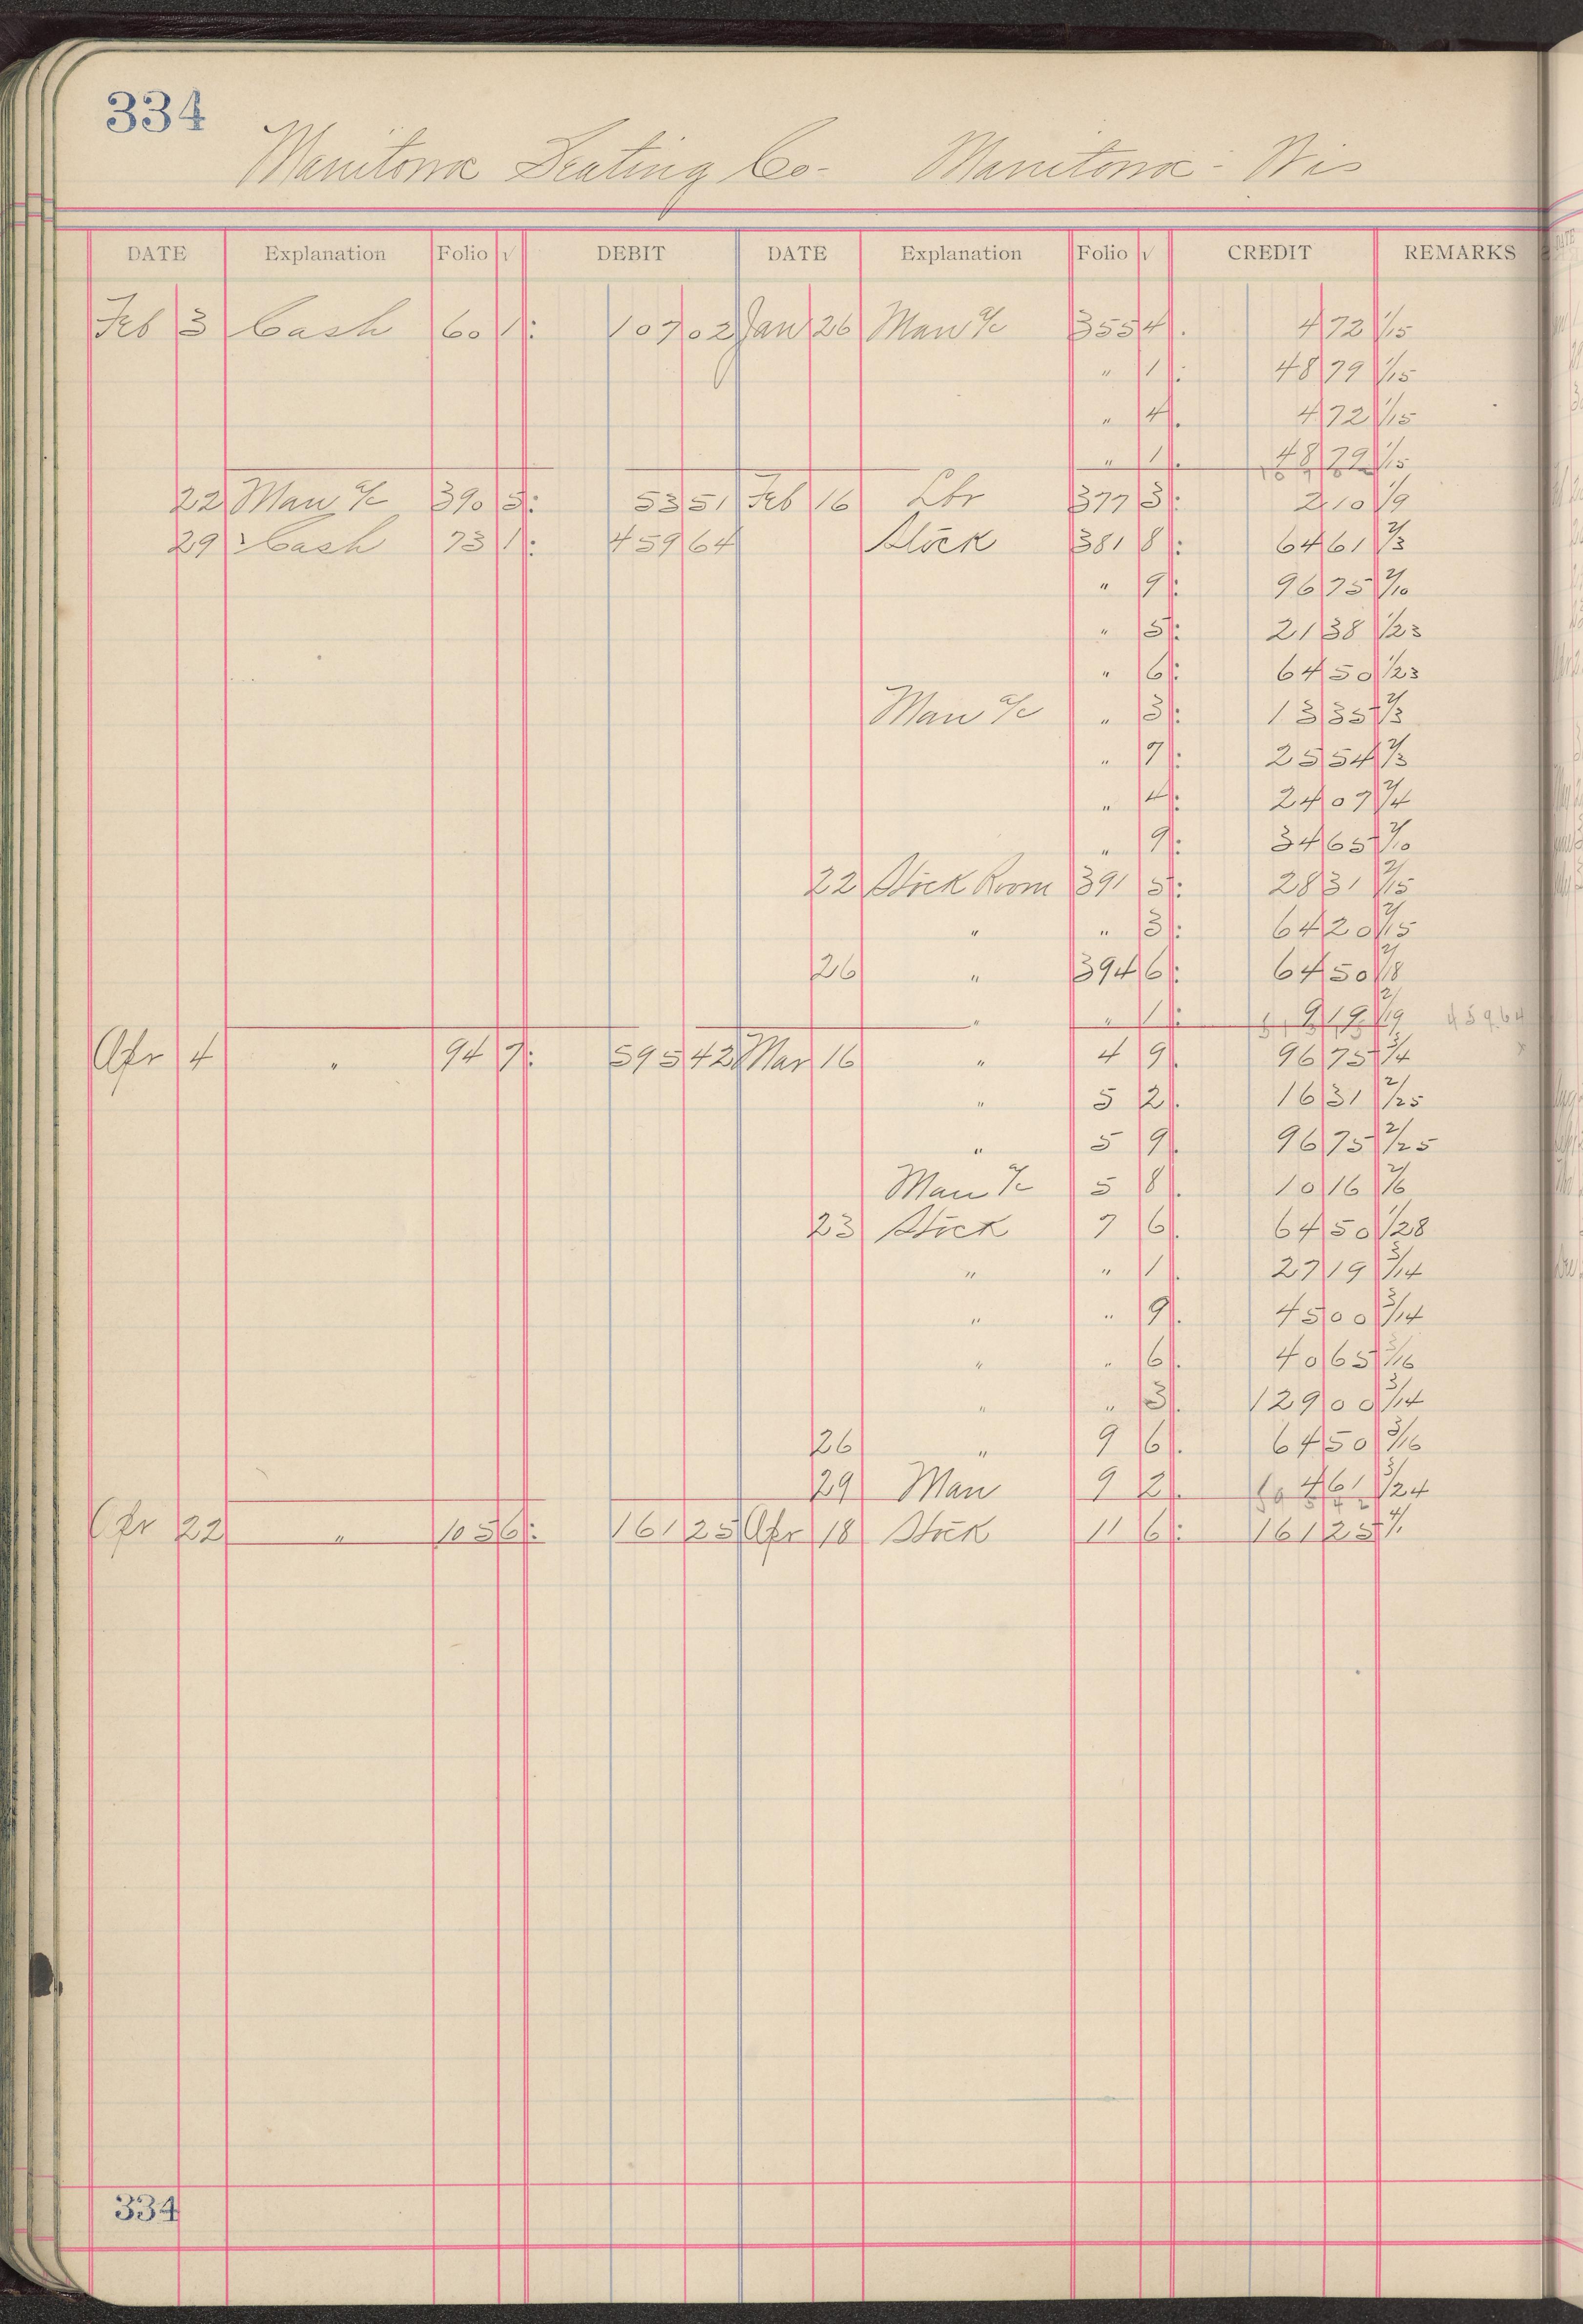 334
Manitowoc Seating Co- Manitowoc - Wis
DATE Explanation Folio √ DEBIT DATE Explanation Folio √ CREDIT REMARKS
Feb 3 Cash 60 1 107 02 Jan 26 Man a/c 355 4 4 72 1/15
" 1 48 79 1/15
" 4 4 72 1/15
" 1 48 79 1/15
22 Man a/c 390 5 53 51 Feb 16 Lbr 377 3 2 10 1/9
29 Cash 73 1 459 64 Stock 381 8 64 61 2/3
" 9 96 75 2/10
" 5 21 38 1/23
" 6 64 50 1/23
Man a/c " 3 13 35 2/3
" 7 25 54 2/3
" 4 24 07 2/4
" 9 34 65 2/10
22 Stock Room 391 5 28 31 2/15
" " 3 64 20 2/15
26 " 394 6 64 50 2/18
" " 1 9 19 2/19 459 64
Apr 4 " 94 7 595 42 Mar 16 " 4 9 96 75 3/4
" 5 2 16 31 2/25
" 5 9 96 75 2/25
Man a/c 5 8 10 16
23 Stock 7 6 64 50 1/28
" " 1 27 19 3/14
" " 9 45 00 3/14
" " 6 40 65 3/16
" " 3 129 00 3/14
26 " 9 6 64 50 3/16
29 Man 9 2 4 61 3/24
Apr 22 " 105 6 161 25 Apr 18 Stock 11 6 161 25
334